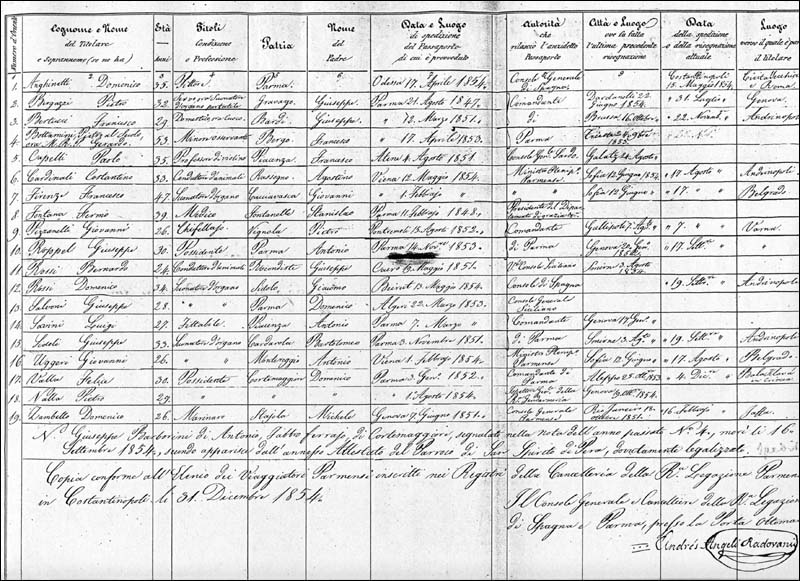 Numero d'Ordine | Cognome e Nome del Titolare e Soprannome (se ne ha) | Età Anni | Titoli Condizione e Professione | Patria | Nome del Padre | Data e Luogo di spedizione del Passaporto di cui è provveduto | Autorità che rilasciò l'anzidetto Passaporto | Città o Luogo ove fu fatta l'ultima precedente vidimazione | Data della spedizione o della vidimazione attuale | Luogo verso il quale è partito il Titolare
1. Anghinetti Domenico 35. Pittore Parma. Odessa 17 Aprile 1854. Console Generale di Spagna Costantinopoli 15 Maggio 1854. Civita Vecchia e Roma.
2. Bragazzi Pietro 32. Suonator d'organo portatile Gravago. Giuseppe. Parma 21 Agosto 1847. Comandante Dardanelli 22 Giugno 1854. " 31 Luglio " Genova.
3. Bertucci Francesco 29 Bardi. Giuseppe. " 12 Marzo 1851. Di Brussa 16 Ottobre " 22 Novem. " Andrinopoli
4. 53. Minor osservante Borgo. Francesco " 17 Aprile 1853. Parma
5. Capelli Paolo 35. Piacenza. Francesco Atene 4 Agosto 1851 Console Gen. Sardo. Galatz 24 Agosto
6. Cardinali Costantino 33. Conduttor d'animali Agostino Viena 12 Maggio 1854. Ministro Plenip. Parmense Sofia 12 Giugno 1854 " 17 Agosto " Andrinopoli
7. Firenze Francesco 47. Suonator d'organo Canevasca Giovanni " 1 Febbrajo " " " Sofia 12 Giugno " " 17. " " Belgrado.
8. Fontana Fermo 39. Medico Fontanelle Stanislao Parma 11 Febbrajo 1848. Presidente del Dipartimento di
9. Pizzarelli Giovanni 26. Vignola Pietro Pontremoli 13 Agosto 1852. Comandante Gallipoli 7 Agosto " 7. " " Varna.
10. Roppoli Giuseppe 30. Possidente Parma Antonio Parma 14 Novre 1853. di Parma Genova 20 Gen. 1852. " 17. Settre " "
11. Rossi Bernardo 24. Conduttor d'animali Giuseppe Maggio 1851. Vice Console Siciliano Smirne 3. Agosto 1854.
12. Rossi Domenico 34. Suonator d'organo Sidolo. Giacomo Beirut 13 Maggio 1854. Console di Spagna " 19. Settre " Andrinopoli
13. Salvoni Giuseppe 28. " " Parma Domenico Algeri 22 Marzo 1853. Console Generale Siciliano
14. Savini Luigi 27. Piacenza Antonio Parma 7. Marzo " Comandante Genova 17 Gen.
15. Sidoli Giuseppe 33. Suonator d'organo Cardarola Bartolomeo Parma 3. Novembre 1851. di Parma Smirne 3. Ag. " 19. Settre " Andrinopoli
16 Uggeri Giovanni 26. " " Antonio Viena 1. Febbrajo 1854. Ministro Plenip. Parmense Sofia 12 Giugno " 17. Agosto " Belgrado.
17. Valla Felice 30. Possidente Cortemaggiore Domenico Parma 3. Gen. 1852. Comandante di Parma Aleppo 25 1853 " 4. Dicre " Balaklava in Crimea
18. Valla Pietro 29. " " " 1. Agosto 1854.
19. Zambelli Domenico 26. Marinaro Michele Genova 7. Giugno 1851. Console Generale Parmense Rio Janeiro " 16. Febbrajo "
N. Giuseppe Barborini di Antonio, fabbro ferrajo, di Cortemaggiore, segnalato nella nota dell'anno passato No. 4, morì li 16
Settembre 1854, secondo apparisce dall'annesso Attestato del Parroco di San Spirito di Pera, dovutamente legalizzato.
Copia conforme all'Elenco dei Viaggiatori Parmensi inscritti nei Registri della Cancelleria della Ra. Legazione Parmense
in Costantinopoli li 31. Dicembre 1854.
Il Console Generale e Cancelliere della Ra. Legazione
di Spagna e Parma, presso la Porta Ottomana
Andrés Angeli Radovani